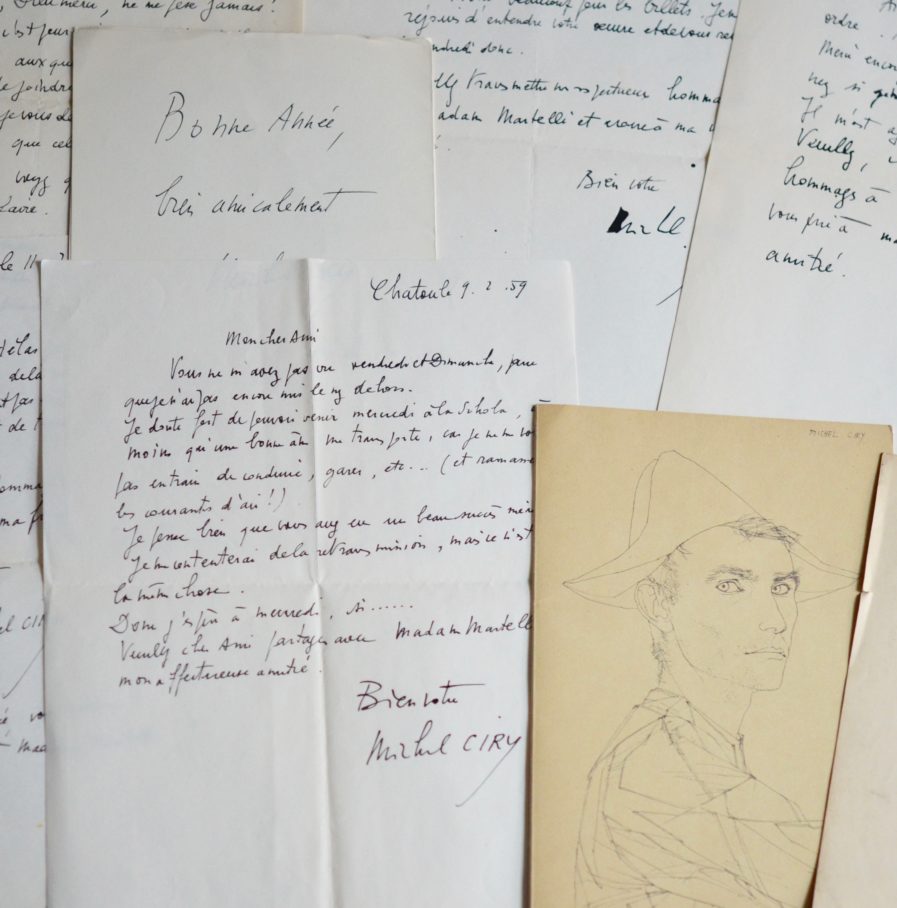 , Dieu merci, ne me pèse jamais!
c'est peu
aux qu
de joindre
je vous de
que cel
Bonne Année,
bien amicalement
beaucoup pour les billets. Je me
réjouis d'entendre votre œuvre et de vous re
vendredi donc.
transmettre mes respectueux homma
adam Martelli et croire à ma
Bien votre
Michel
ordre
Merci encore
Il m'est a
Veuillez,
hommages à
vous prie à ma
amitié.
le 11
Chatou le 9.2.59
Mon cher Ami
Vous ne m'avez pas vu vendredi et Dimanche, parce
que je n'ai pas encore mis le nez dehors.
Je doute fort de pouvoir venir mercredi à la Schola, à
moins qu'une bonne âme me transporte, car je ne me vois
pas en train de conduire, garer, etc... (et ramasser
les courants d'air!)
Je pense bien que vous avez eu un beau succès
Je me contenterai de la retransmission, mais ce n'est
la même chose.
Donc j'espère à mercredi, si......
Veuillez cher Ami partager avec Madame Martell
mon affectueuse amitié.
Bien votre
Michel CIRY
MICHEL CIRY
hélas
dela
et pas
et de t
omma
ma f
el CIR
vo
mad